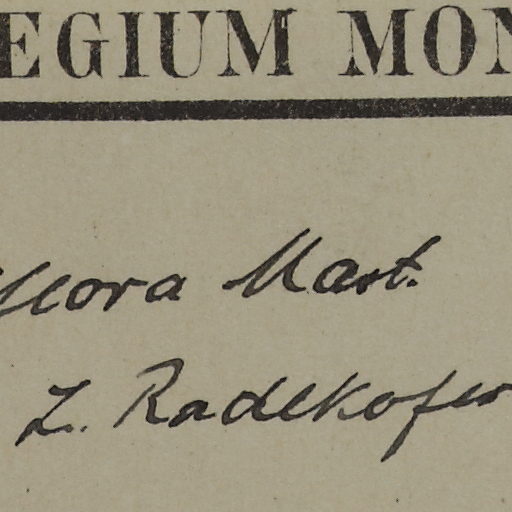 EGIUM MON
flora Mart.
L. Radlkofer